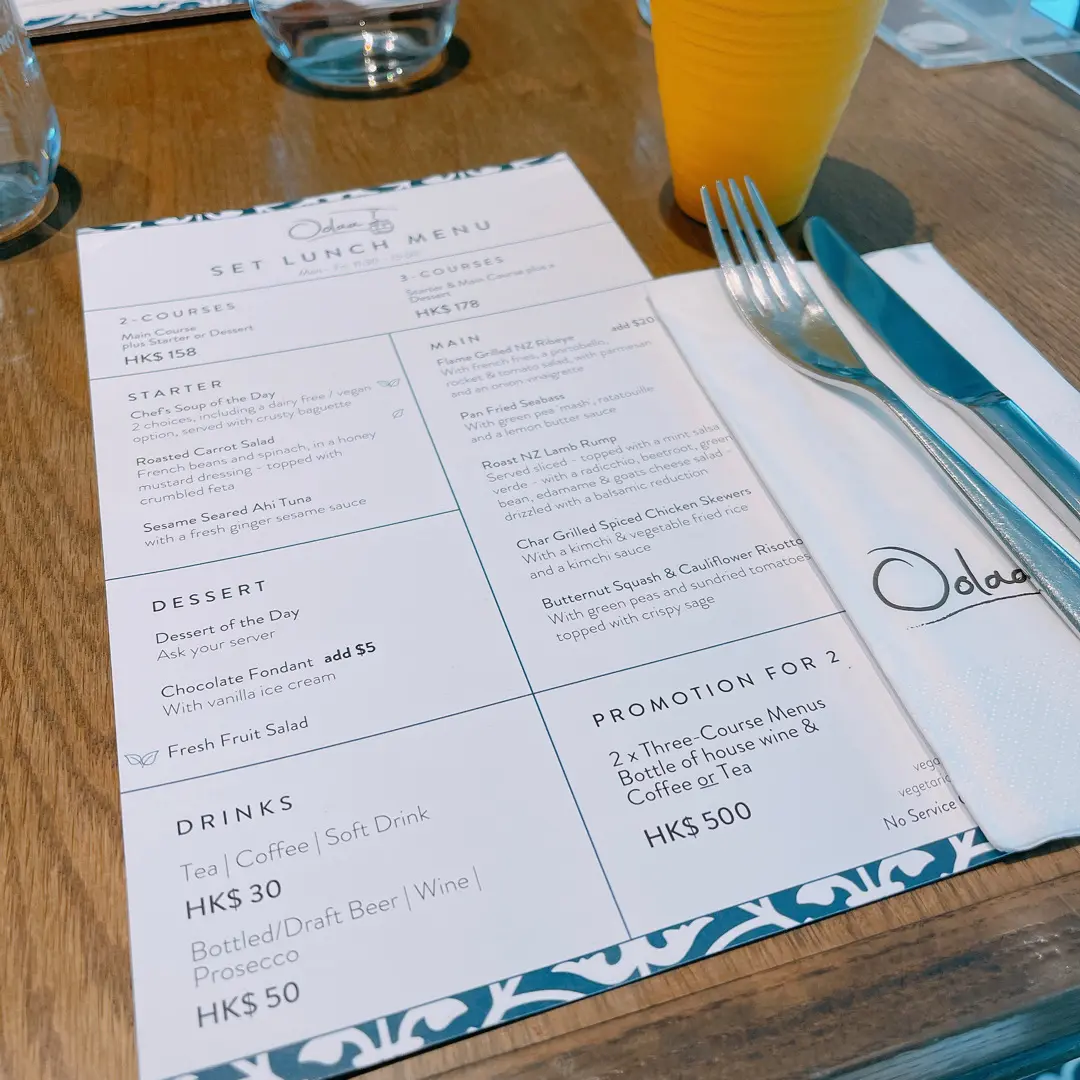 Odaa
SET LUNCH MENU
2-COURSES
Main Course
plus Starter or Dessert
HK$ 158
3-COURSES
Starter & Main Course plus a
Dessert
HK$ 178
STARTER
Chef's Soup of the Day
2 choices, including a dairy free / vegan
option, served with crusty baguette
Roasted Carrot Salad
French beans and spinach, in a honey
mustard dressing - topped with
crumbled feta
Sesame Seared Ahi Tuna
with a fresh ginger sesame sauce
DESSERT
Dessert of the Day
Ask your server
Chocolate Fondant add $5
With vanilla ice cream
Fresh Fruit Salad
DRINKS
Tea | Coffee | Soft Drink
HK$ 30
Bottled/Draft Beer | Wine |
Prosecco
HK$ 50
MAIN
Flame Grilled NZ Ribeye add $20
With french fries, a portobello,
rocket & tomato salad, with parmesan
and an onion vinaigrette
Pan Fried Seabass
With green pea mash, ratatouille
and a lemon butter sauce
Roast NZ Lamb Rump
Served sliced - topped with a mint salsa
verde - with a radicchio, beetroot, green
bean, edamame & goats cheese salad -
drizzled with a balsamic reduction
Char Grilled Spiced Chicken Skewers
With a kimchi & vegetable fried rice
and a kimchi sauce
Butternut Squash & Cauliflower Risotto
With green peas and sundried tomatoes
topped with crispy sage
PROMOTION FOR 2
2 x Three-Course Menus
Bottle of house wine &
Coffee or Tea
HK$ 500
No Service
Odaa